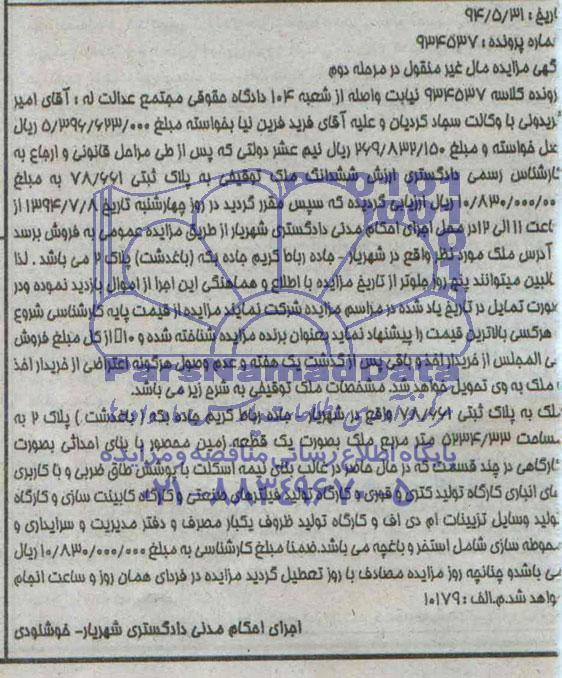 اریخ : ۹۴/۵/۳۱
شماره پرونده : ۹۳۴۵۳۷
گهی مزایده مال غیر منقول در مرحله دوم
رونده کلاسه ۹۳۴۵۳۷ نیابت واصله از شعبه ۱۰۴ دادگاه حقوقی مجتمع عدالت له : آقای امیر
ریدونی با وکالت سجاد کردیان و علیه آقای فرید فرین نیا بخواسته مبلغ ۵/۳۹۶/۶۲۳/۰۰۰ ریال
صل خواسته و مبلغ ۲۶۹/۸۳۲/۱۵۰ ریال نیم عشر دولتی که پس از طی مراحل قانونی و ارجاع به
کارشناس رسمی دادگستری ارزش ششدانگ ملک توقیفی به پلاک ثبتی ۷۸/۶۶۱ به مبلغ
۱۰/۸۳۰/۰۰۰/۰۰۰ ریال ارزیابی گردیده که سپس مقرر گردید در روز چهارشنبه تاریخ ۱۳۹۴/۷/۸ از
ساعت ۱۱ الی ۱۲ در محل اجرای احکام مدنی دادگستری شهریار از طریق مزایده عمومی به فروش برسد
آدرس ملک مورد نظر واقع در شهریار – جاده رباط کریم جاده بکه (باغدشت) پلاک ۲ می باشد . لذا
البین میتوانند پنج روز جلوتر از تاریخ مزایده با اطلاع و هماهنگی این اجرا از اموال بازدید نموده ودر
صورت تمایل در تاریخ یاد شده در مراسم مزایده شرکت نمایند مزایده از قیمت پایه کارشناسی شروع
هرکسی بالاترین قیمت را پیشنهاد نماید بعنوان برنده مزایده شناخته شده و ۱۰٪ از کل مبلغ فروش
ی المجلس از خریدار اخذ و باقی پس از گذشت یک هفته و عدم وصول هرگونه اعتراضی از خریدار اخذ
ملک به وی تحویل خواهد شد. مشخصات ملک توقیفی به شرح زیر می باشد.
ملک به پلاک ثبتی ۷۸/۶۶۱ واقع در شهریار – جاده رباط کریم جاده بکه ( باغدشت ) پلاک ۲ به
مساحت ۵۲۳۴/۳۳ متر مربع ملک بصورت یک قطعه زمین محصور با بنای احداثی بصورت
کارگاهی در چند قسمت که در حال حاضر در غالب بنای نیمه اسکلت با پوشش طاق ضربی و با کاربری
های انباری کارگاه تولید کتری و قوری و کارگاه تولید فیلترهای صنعتی و کارگاه کابینت سازی و کارگاه
تولید وسایل تزیینات ام دی اف و کارگاه تولید ظروف یکبار مصرف و دفتر مدیریت و سرایداری و
محوطه سازی شامل استخر و باغچه می باشد.ضمنا مبلغ کارشناسی به مبلغ ۱۰/۸۳۰/۰۰۰/۰۰۰ ریال
می باشدو چنانچه روز مزایده مصادف با روز تعطیل گردید مزایده در فردای همان روز و ساعت انجام
واهد شد.م.الف : ۱۰۱۷۹
اجرای احکام مدنی دادگستری شهریار– خوشنودی
ParsNamadData
پایگاه اطلاع رسانی مناقصه و مزایده
۰۲۱-۸۸۳۴۹۶۷۰-۵